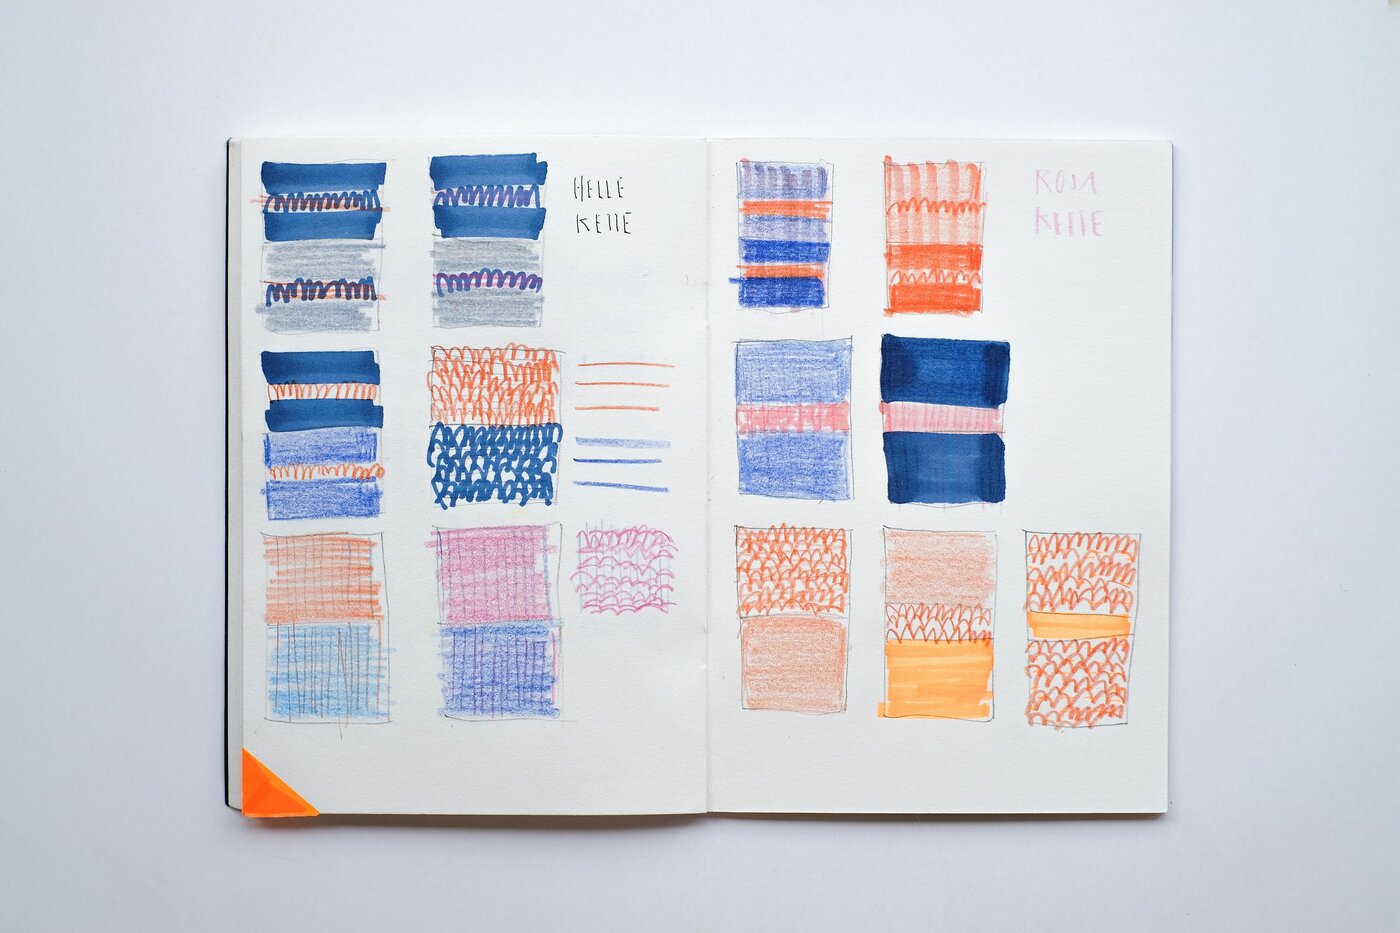 HELLE
KETTE
ROSA
KETTE